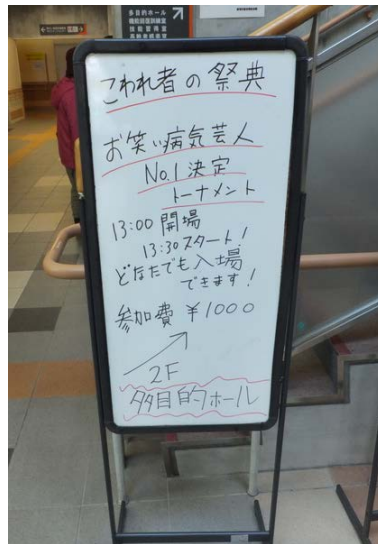 多目的ホール
こわれ者の祭典
お笑い病気芸人
No.1 決定
トーナメント
13:00 開場
13:30 スタート!
どなたでも入場
できます!
参加費 ¥1000
2F
多目的ホール